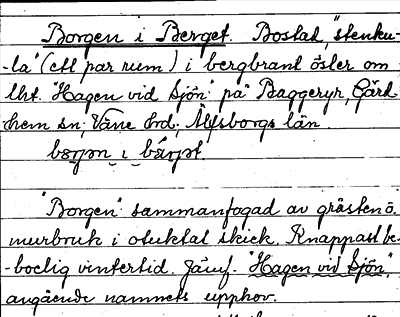 Borgen i Berget. Bostad, "stenku-
-la" (ett par rum) i bergbrant öster om
lht. "Hagen vid Sjön" på Baggeryr, Gärd
hem sn; Väne hd; Älfsborgs län.
bɷrjɷn i bärjət
"Borgen" sammanfogad av gråsten o.
murbruk i oluktat skick. Knappast be-
-boelig vintertid. Jämf. "Hagen vid Sjön",
angående namnets upphov.